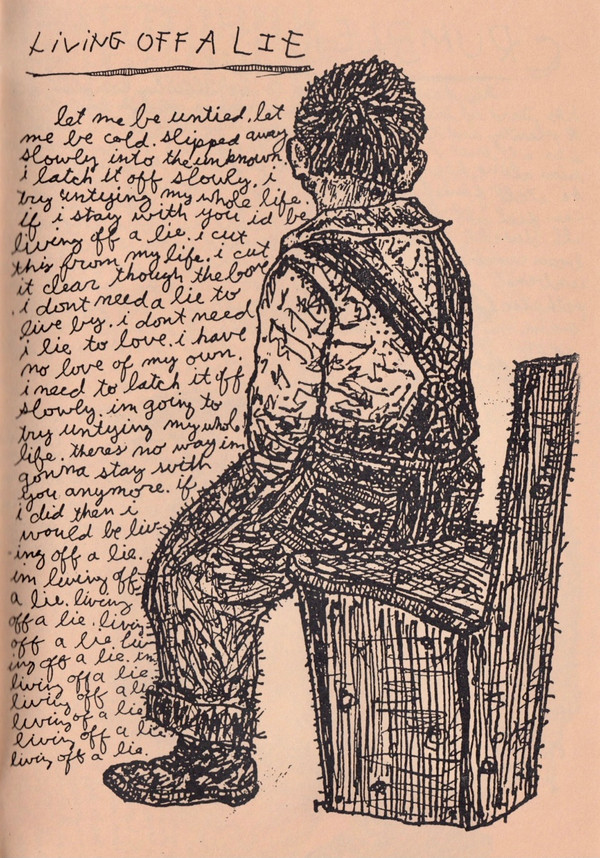 LIVING OFF A LIE
let me be untied. let
me be cold. slipped away
slowly into the unknown
i latch it off slowly. i
try untying my whole life.
if i stay with you id be
living off a lie. i cut
this from my life. i cut
it clear though the bone
. i dont need a lie to
live by. i dont need
i lie to love. i have
no love of my own.
i need to latch it off
slowly. im going to
try untying my whole
life. theres no way im
gonna stay with
you anymore. if
i did then i
would be liv-
ing off a lie.
im living off
a lie. living
off a lie. living
off a lie. liv-
ing off a lie. im
living off a lie.
living off a lie
living of a lie
living off a lie.
living off a lie.